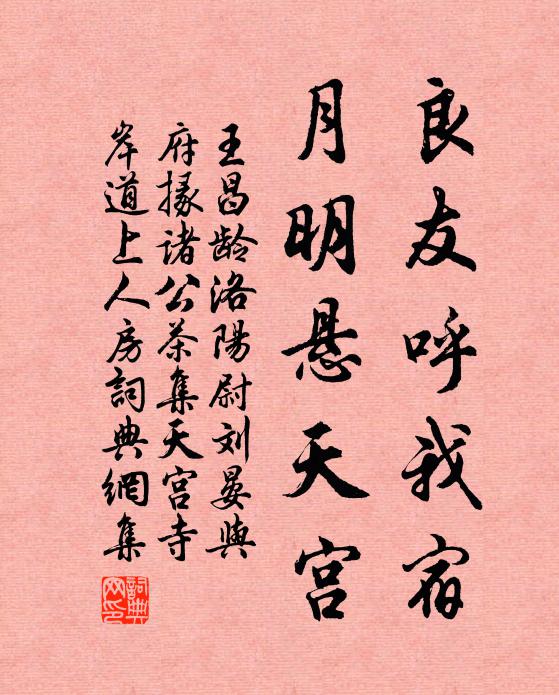 良友呼我宿
月明悬天宫
王昌龄洛陽尉刘晏與
府掾诸公茶集天宫寺
岸道上人房詞典網集
詞典网印